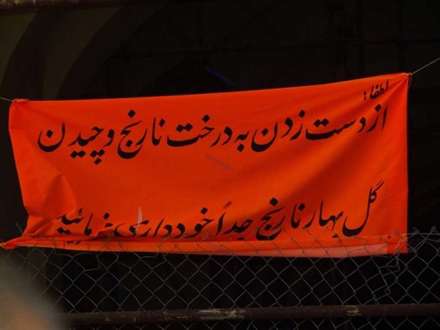 لطفاً
از دست زدن به درخت نارنج و چیدن
گل بهار نارنج جداً خودداری فرمائید